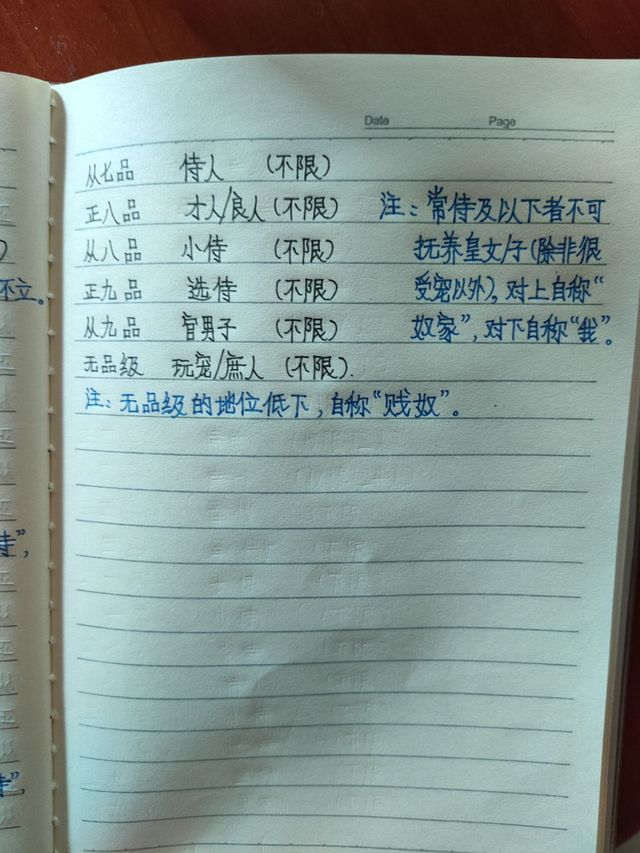 Date Page
从七品 侍人 (不限)
正八品 才人/良人 (不限) 注:常侍及以下者不可
从八品 小侍 (不限) 抚养皇女/子(除非很
正九品 选侍 (不限) 受宠以外),对上自称“
从九品 官男子 (不限) 奴家”,对下自称“我”。
无品级 玩宠/庶人 (不限).
注:无品级的地位低下,自称“贱奴”。
不立。
侍”,